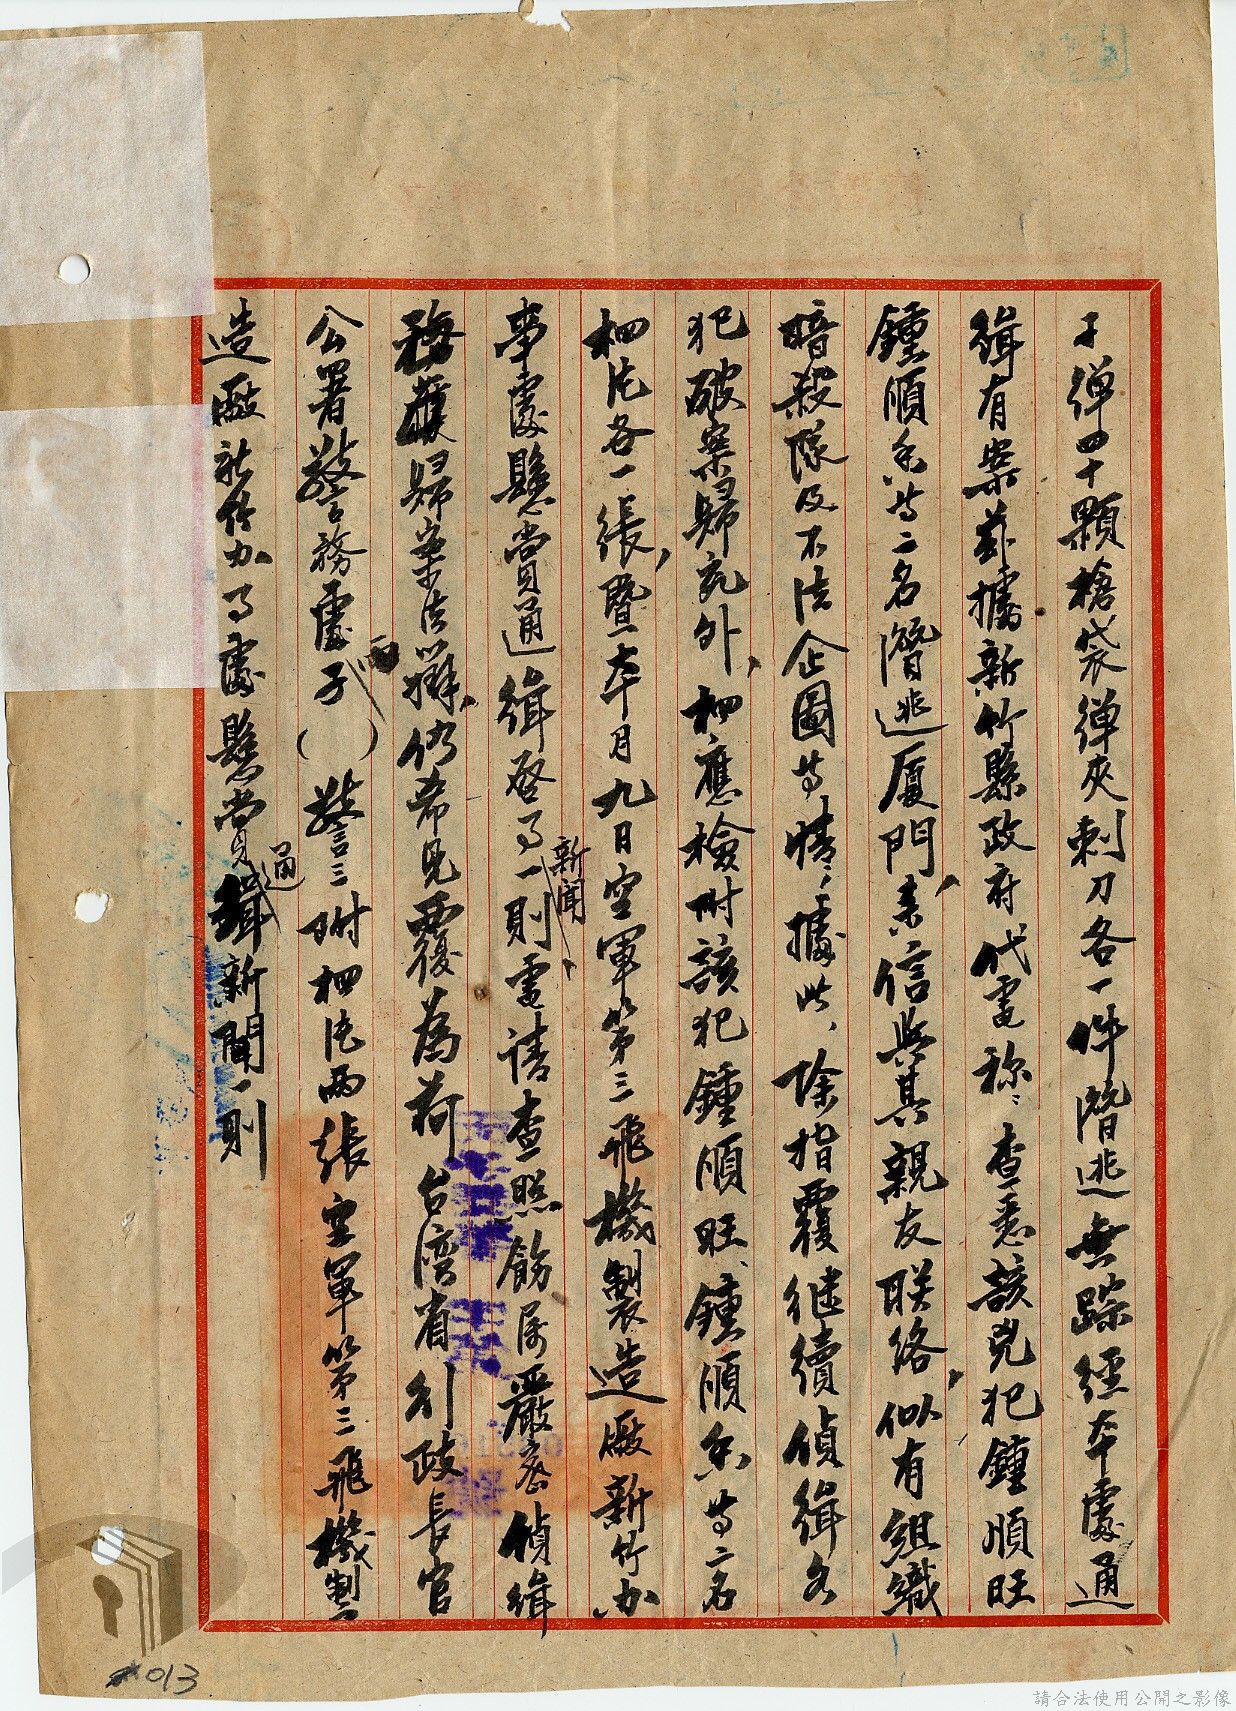 子彈四十顆槍袋彈夾刺刀各一件潛逃無踪經本處通
緝有案茲據新竹縣政府代電称：查悉該兇犯鍾順旺
鍾順糸等二名潛逃厦門，来信與其親友联絡，似有組織
暗殺隊及不法企圖等情，據此，除指覆继續偵緝各
犯破案歸究外，相應檢附該犯鍾順旺、鍾順糸等二名
相片各一張，暨本月九日空軍第三飛機製造廠新竹办
事處懸賞通緝啓事新聞一則電請查照飭属嚴密偵緝
務獲歸案法辦，仍希見覆為荷 台湾省行政長官
公署警務處子（ ）警三附相片両張空軍第三飛機製
造廠新竹办事處懸賞通緝新聞一則
013
請合法使用公開之影像